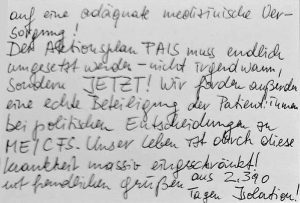 auf eine adäquate medizinische Ver-
sorgung!
Der Aktionsplan PAIS muss endlich
umgesetzt werden - nicht irgendwann,
sondern JETZT! Wir fordern außerdem
eine echte Beteiligung der Patient:innen
bei politischen Entscheidungen zu
ME/CFS. Unser Leben ist durch diese
Krankheit massiv eingeschränkt!
mit freundlichen Grüßen aus 2.390
Tagen Isolation!